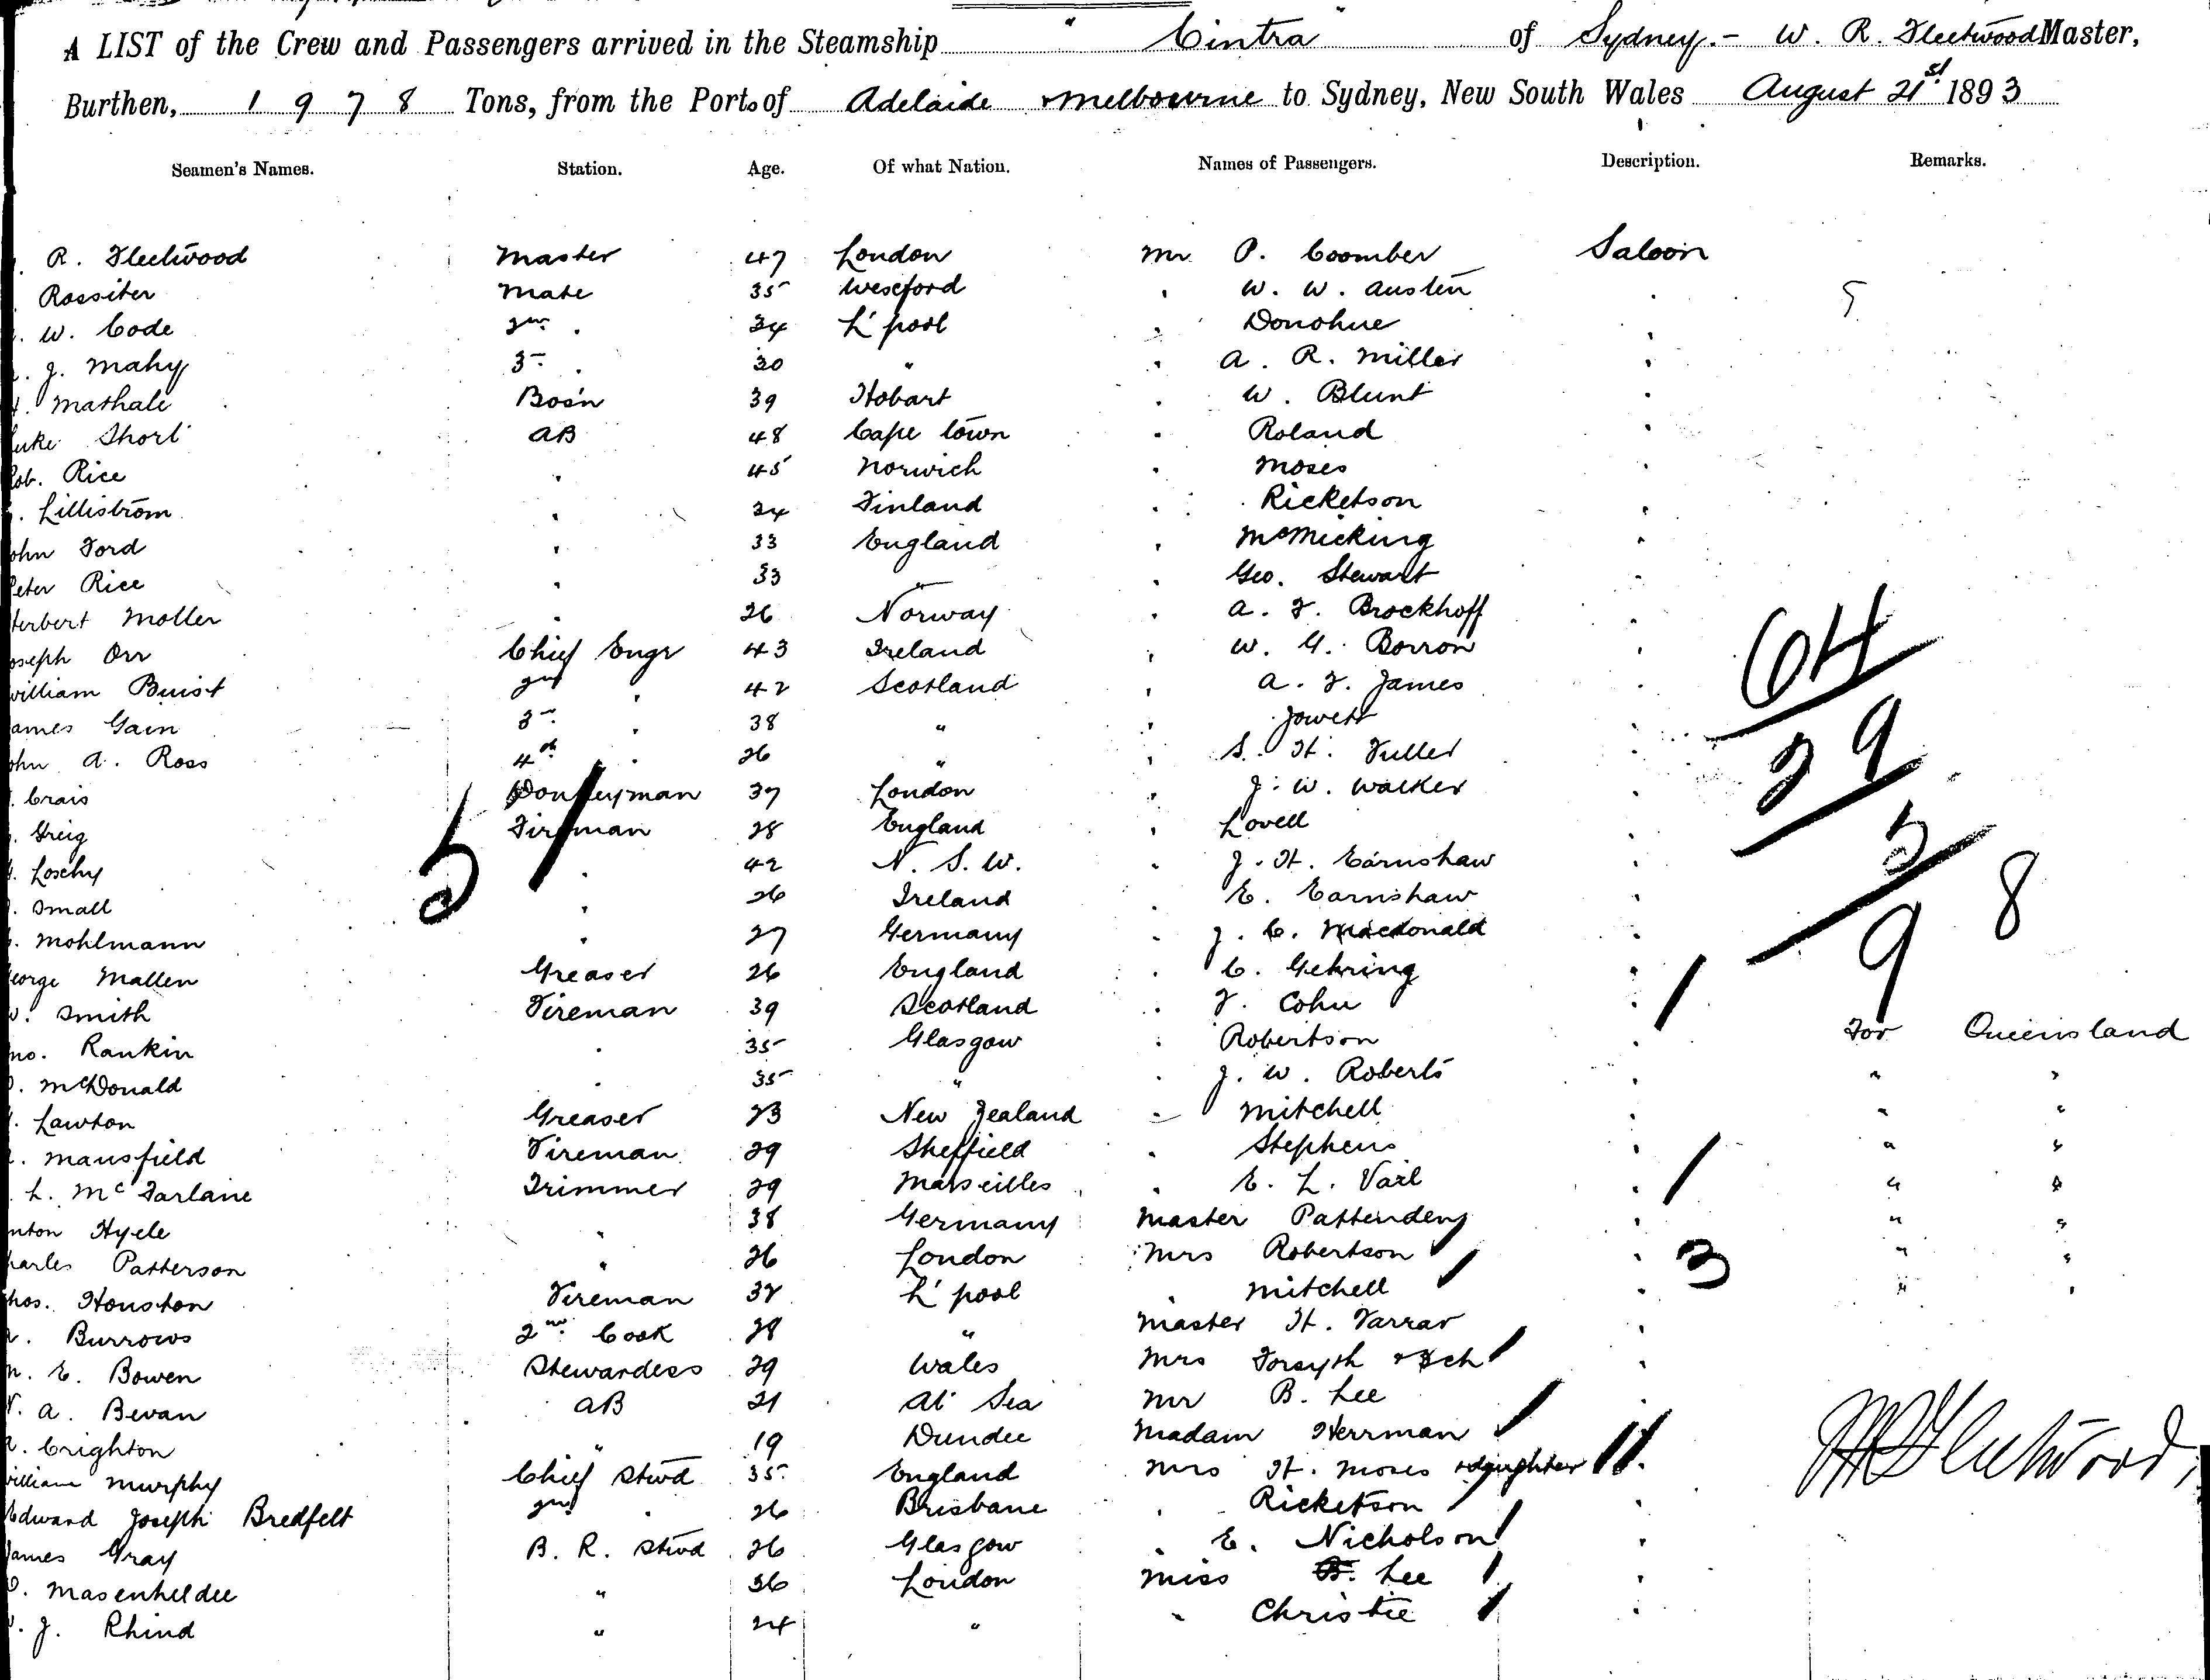 A LIST of the Crew and Passengers arrived in the Steamship "Cintra" of Sydney.- W. R. Fleetwood Master,
Burthen, 1978 Tons, from the Ports of Adelaide & Melbourne to Sydney, New South Wales August 21st 1893
Seamen's Names. Station. Age. Of what Nation. Names of Passengers. Description. Remarks.
R. Fleetwood Master 47 London Mr P. Coomber Saloon
Rossiter Mate 35 Wexford " W. W. Austin " 5
W. Code 2nd " 34 L'pool " Donohue "
J. Mahy 3rd " 30 " " A. R. Miller "
Mathale Bos'n 39 Hobart " W. Blunt "
Luke Short AB 48 Cape Town " Roland "
Rob. Rice " 45 Norwich " Moses "
Lillistrom " 24 Finland " Ricketson "
John Ford " 33 England " McMicking "
Peter Rice " 33 " " Geo. Stewart "
Herbert Moller " 26 Norway " A. F. Brockhoff "
Joseph Orr Chief Engr 43 Ireland " W. G. Borron " 64
William Buist 2nd " 42 Scotland " A. F. James "
James Gain 3rd " 38 " " Jowett "
John A. Ross 4th " 26 " " S. H. Fuller " 29
Crais Donkeyman 37 London " J. W. Walker "
Greig Fireman 28 England " Lovell " 5
51 Loschy " 42 N. S. W. " J. H. Earnshaw "
Small " 26 Ireland " E. Earnshaw " 98
Mohlmann " 27 Germany " J. C. Macdonald "
George Mallen Greaser 26 England " C. Gehring "
Smith Fireman 39 Scotland " F. Cohu " 1
Jno. Rankin " 35 Glasgow " Robertson " For Queensland
McDonald " 35 " " J. W. Roberts " " "
Lawton Greaser 23 New Zealand " Mitchell " " "
Mansfield Fireman 29 Sheffield " Stephens " " "
L. McFarlane Trimmer 29 Marseilles " E. L. Vail " 1 " "
Anton Hyele " 38 Germany Master Pattenden " " "
Charles Patterson " 26 London Mrs Robertson " 3 " "
Thos. Houston Fireman 32 L'pool " Mitchell " " "
Burrows 2nd Cook 28 " Master H. Farrar "
E. Bowen Stewardess 29 Wales Mrs Forsyth & ch "
A. Bevan AB 21 At Sea Mr B. Lee "
Crighton " 19 Dundee Madam Herrman "
William Murphy Chief Stwd 35 England Mrs H. Moses & daughter " 11
Edward Joseph Bredfelt 2nd " 26 Brisbane " Ricketson "
James Gray B. R. Stwd 26 Glasgow " E. Nicholson "
Masenheldee " 36 London Miss Lee "
J. Rhind " 24 " " Christie "
WR Fleetwood